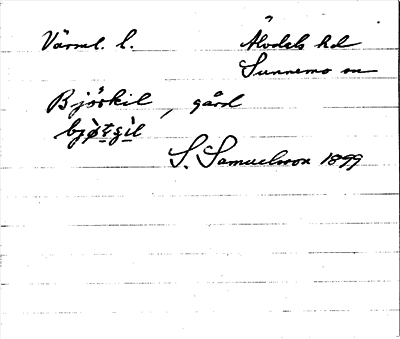 Värml. l. Älvdals hd
Sunnemo sn
Björkil, gård
S. Samuelsson 1899